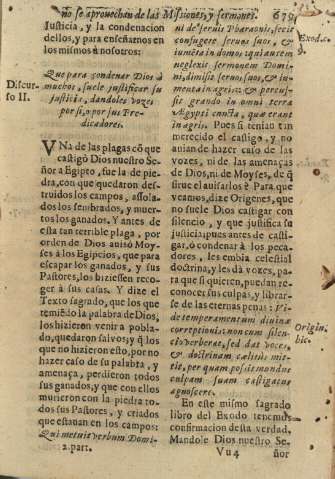 no se aprovechan de las Missiones, y sermones. 679
Iusticia, y la condenacion
dellos, y para enseñarnos en
los mismos à nosotros:
Discur-
so II.
Que para condenar Dios à
muchos, suele justificar su
justicia, dandoles vozes
por si, o por sus Pre-
dicadores.
VNa de las plagas cõ que
castigò Dios nuestro Se-
ñor a Egipto, fue la de pie-
dra, con que quedaron des-
truidos los campos, assola-
dos los sembrados, y muer-
tos los ganados. Y antes de
esta tan terrible plaga, por
orden de Dios avisò Moy-
ses à los Egipcios, que para
escapar los ganados, y sus
Pastores, los hiziessen reco-
ger à sus casas. Y dize el
Texto sagrado, que los que
temiẽdo la palabra de Dios,
los hizieron venir a pobla-
do, quedaron salvos; y q̃ los
que no hizieron esto, por no
hazer caso de su palabra, y
amenaza, perdieron todos
sus ganados, y que con ellos
murieron con la piedra to-
dos sus Pastores, y criados
que estavan en los campos:
Qui metuit verbum Domi-
2.part.
ni de servis Pharaonis, fecit
confugere servos suos, &
iumenta in domos; qui autem
neglexit sermonem Domi-
ni, dimisit servos suos, & iu-
menta in agris: & percus-
sit grando in omni terra
Ægypti cuncta, quæ erant
in agris. Pues si tenian tan
merecido el castigo, y no
avian de hazer caso de las
vozes, ni de las amenaças
de Dios, ni de Moyses, de q̃
sirve el avisarlos? Para que
veamos, dize Origenes, que
no suele Dios castigar con
silencio, y que justifica su
justicia pues antes de casti-
gar, ò condenar à los peca-
dores, les embia celestial
doctrina, y les dà vozes, pa-
ra que si quieren, puedan re-
conocer sus culpas, y librar-
se de las eternas penas: Vi-
de temperamentum divinæ
correptionis: non cum silen-
tio verberat, sed dat voces,
& doctrinam cælitus mit-
tit, per quam possit mundus
culpam suam castigatus
agnoscere.
En este mismo sagrado
libro del Exodo tenemos
confirmacion desta verdad.
Mandole Dios nuestro Se-
Vu 4 ñor
Exod. c.
9.
Origin.
hic.